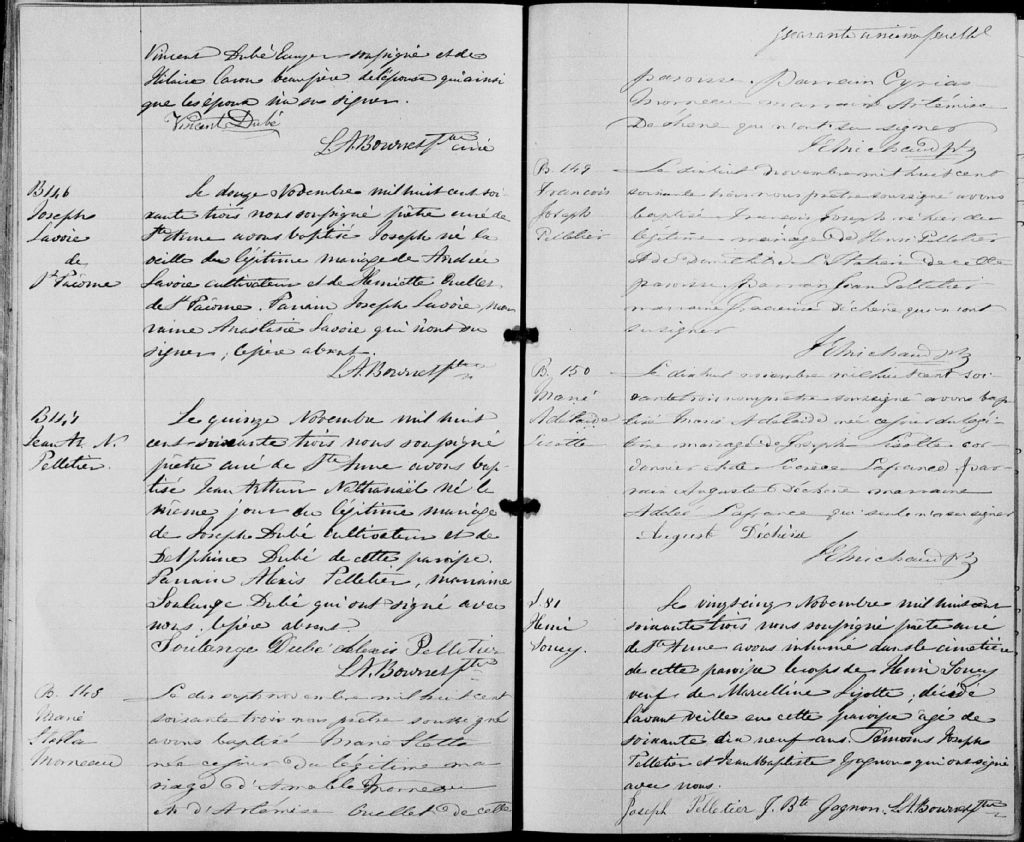 Vincent Dubé Ecuyer soussigné et de
Hilaire Caron beaupère de l'épouse qui ainsi
que les époux n'a su signer.
Vincent Dubé
L.A. Bourret Ptre curé
B 146
Joseph
Lavoie
de
St Pacôme
Le douze Novembre mil huit cent soi-
xante trois nous soussigné prêtre curé de
Ste Anne avons baptisé Joseph né la
veille du légitime mariage de André
Lavoie cultivateur et de Henriette Ouellet
de St Pacôme. Parrain Joseph Lavoie, mar-
raine Anastasie Lavoie qui n'ont su
signer, le père absent.
L.A. Bourret Ptre
B 147
Jean Ar. N.
Pelletier
Le quinze Novembre mil huit
cent soixante trois nous soussigné
prêtre curé de Ste Anne avons bap-
tisé Jean Arthur Nathanaël né le
même jour du légitime mariage
de Joseph Dubé cultivateur et de
Delphine Dubé de cette paroisse.
Parrain Alexis Pelletier, marraine
Soulange Dubé qui ont signé avec
nous. le père absent.
Soulange Dubé Alexis Pelletier
L.A. Bourret Ptre
B. 148
Marie
Stella
Morneau
Le dix sept novembre mil huit cent
soixante trois nous prêtre soussigné
avons baptisé Marie Stella
née ce jour du légitime ma
riage d'Amable Morneau
& d'Artémise Ouellet de cette
quarante unième feuillet
paroisse. Parrain Cyrias
Morneau marraine Artémise
Dechene qui n'ont su signer
F E Michaud Ptr
B. 149
Francois
Joseph
Pelletier
Le dixhuit novembre mil huit cent
soixante trois nous prêtre soussigné avons
baptisé Francois Joseph né hier du
légitime mariage de Henri Pelletier
& de de cette
paroisse. Parrain Jean Pelletier
marraine Dechene qui n'ont
su signer
F E Michaud Ptr
B. 150
Marie
Adelaide
Lizotte
Le dixhuit novembre mil huit cent soi-
xante trois nous prêtre soussigné avons bap
tisé Marie Adelaide née ce jour du légi-
time mariage de Joseph Lizotte cor-
donnier et de Lucrèce Lafrance par-
rain Auguste Déchène marraine
Adele Lafrance qui seule n'a su signer
August Déchène
F E Michaud Ptr
S. 81
Henri
Soucy.
Le vingt cinq Novembre mil huit cent
soixante trois nous soussigné prêtre curé
de Ste Anne avons inhumé dans le cimetière
de cette paroisse le corps de Henri Soucy
veuf de Marcelline Lizotte, décédé
l'avant veille en cette paroisse agé de
soixante dix neuf ans. Témoins Joseph
Pelletier et Jean Baptiste Gagnon qui ont signé
avec nous.
Joseph Pelletier J. Bte Gagnon. L.A. Bourret Ptre